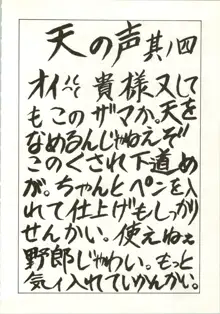 天の声其ノ四
オイ！貴様又して
もこのザマか。天を
なめるんじゃねえぞ
このくされ下道め
が。ちゃんとペンを入
れて仕上げもしっかり
せんかい。使えねぇ
野郎じゃわい。もっと
気ィ入れていかんかい。